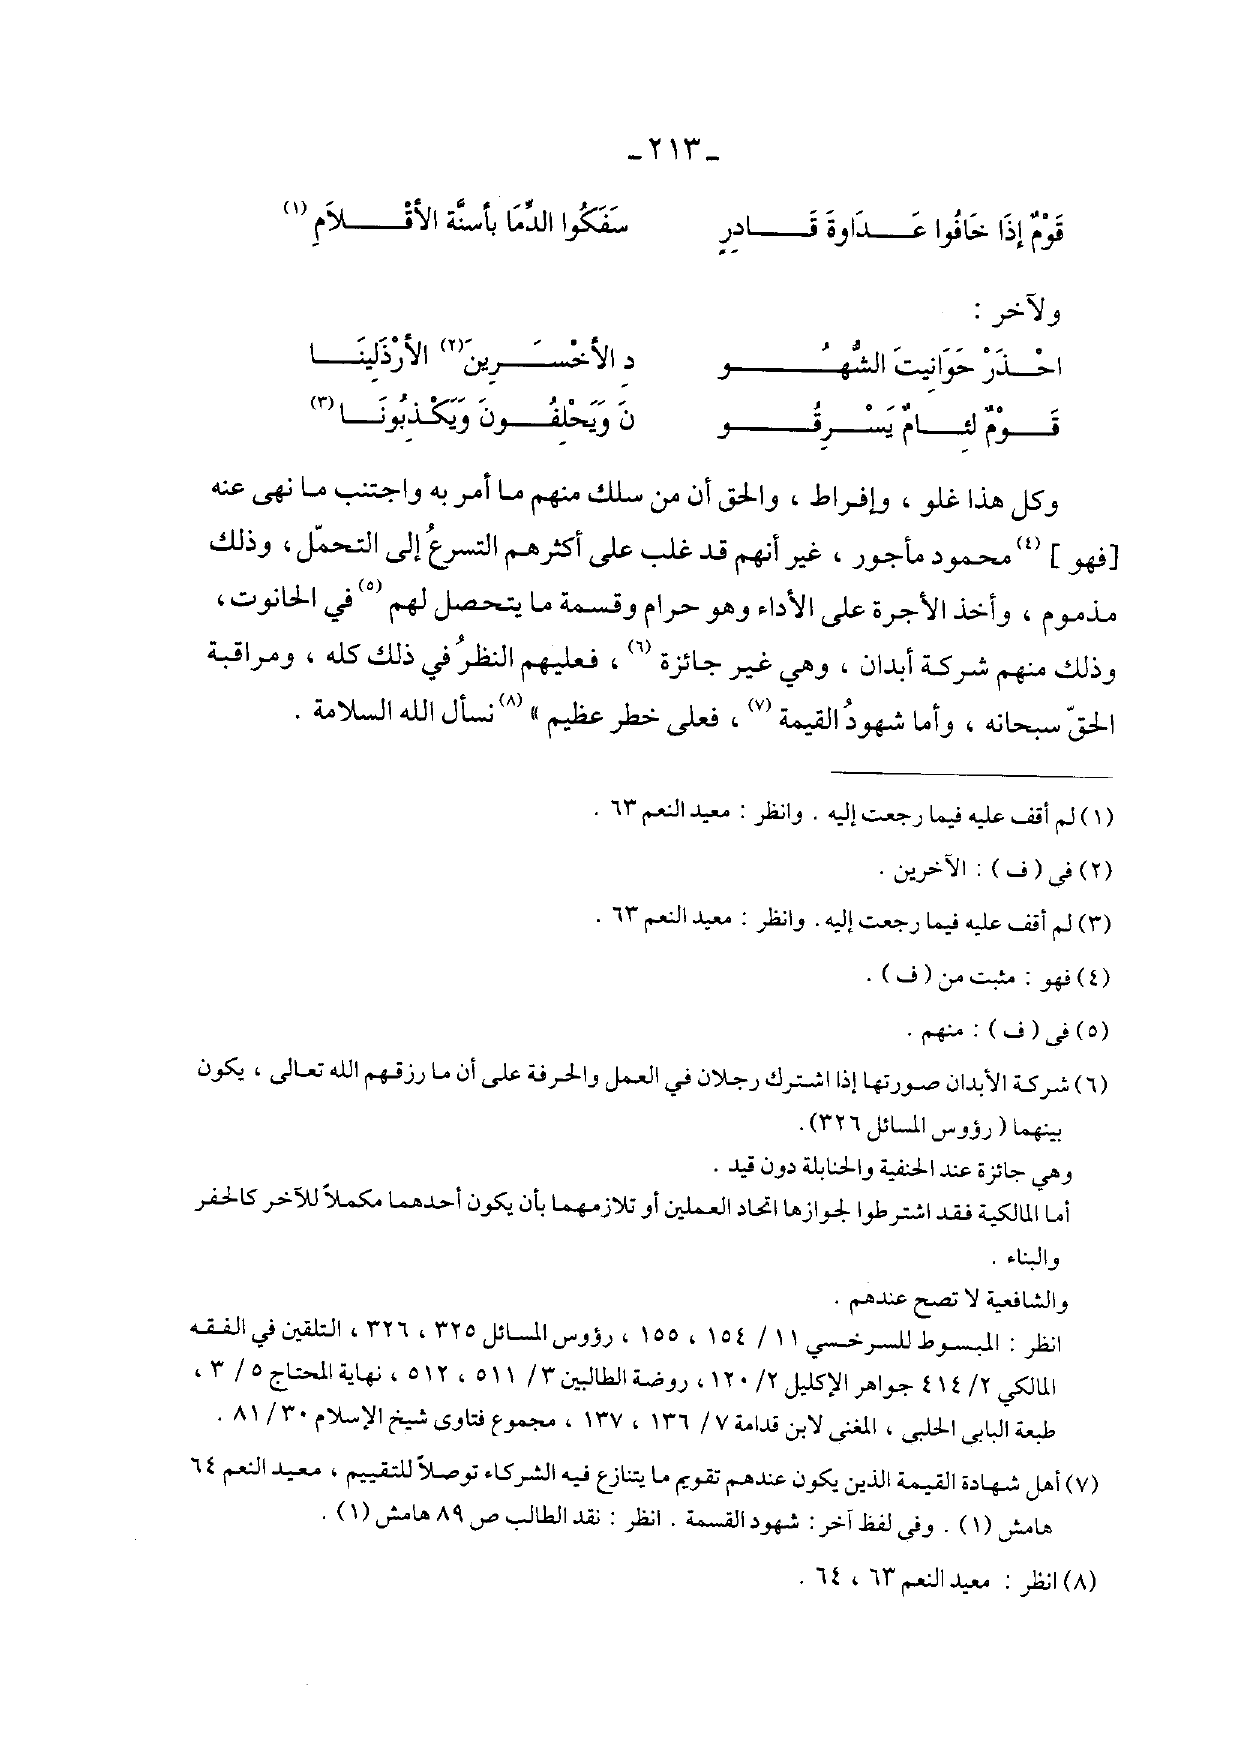 ـ ٢١٣ ـ
قَوْمٌ إذَا خَافُوا عَـدَاوةَ قَـادرٍ سَفَكُوا الدِّمَا بأسنَّة الأقْـلاَمِ (١)
ولآخر :
احْـذَرْ حَوَانيتَ الشُّهُـو دِ الأخْسَـرِينَ (٢) الأرْذَلينَـا
قَـوْمٌ لئِـامٌ يَسْـرِقُـو نَ وَيَحْلِفُـونَ وَيَكْـذِبُونَـا (٣)
وكل هذا غلو ، وإفراط ، والحق أن من سلك منهم ما أمر به واجتنب ما نهى عنه
[فهو ] (٤) محمود مأجور ، غير أنهم قد غلب على أكثرهم التسرعُ إلى التحمّل ، وذلك
مذموم ، وأخذ الأجرة على الأداء وهو حرام وقسمة ما يتحصل لهم (٥) في الحانوت ،
وذلك منهم شركة أبدان ، وهي غير جائزة (٦) ، فعليهم النظرُ في ذلك كله ، ومراقبة
الحقّ سبحانه ، وأما شهودُ القيمة (٧) ، فعلى خطر عظيم » (٨) نسأل الله السلامة .
(١) لم أقف عليه فيما رجعت إليه . وانظر : معيد النعم ٦٣ .
(٢) فى ( ف ) : الآخرين .
(٣) لم أقف عليه فيما رجعت إليه. وانظر : معيد النعم ٦٣ .
(٤) فهو : مثبت من ( ف ) .
(٥) فى ( ف ) : منهم .
(٦) شركة الأبدان صورتها إذا اشترك رجلان في العمل والحرفة على أن ما رزقهم الله تعالى ، يكون
بينهما ( رؤوس المسائل ٣٢٦).
وهي جائزة عند الحنفية والحنابلة دون قيد .
أما المالكية فقد اشترطوا لجوازها اتحاد العملين أو تلازمهما بأن يكون أحدهما مكملاً للآخر كالحفر
والبناء .
والشافعية لا تصح عندهم .
انظر : المبسوط للسرخسي ١١/ ١٥٤ ، ١٥٥ ، رؤوس المسائل ٣٢٥ ، ٣٢٦ ، التلقين في الفقه
المالكي ٢/ ٤١٤ جواهر الإكليل ٢/ ١٢٠ ، روضة الطالبين ٣/ ٥١١ ، ٥١٢ ، نهاية المحتاج ٥/ ٣ ،
طبعة البابى الحلبي ، المغنى لابن قدامة ٧/ ١٣٦ ، ١٣٧ ، مجموع فتاوى شيخ الإسلام ٣٠/ ٨١ .
(٧) أهل شهادة القيمة الذين يكون عندهم تقويم ما يتنازع فيه الشركاء توصلاً للتقييم ، معيد النعم ٦٤
هامش (١) . وفى لفظ آخر : شهود القسمة . انظر : نقد الطالب ص ٨٩ هامش (١) .
(٨) انظر : معيد النعم ٦٣ ، ٦٤ .